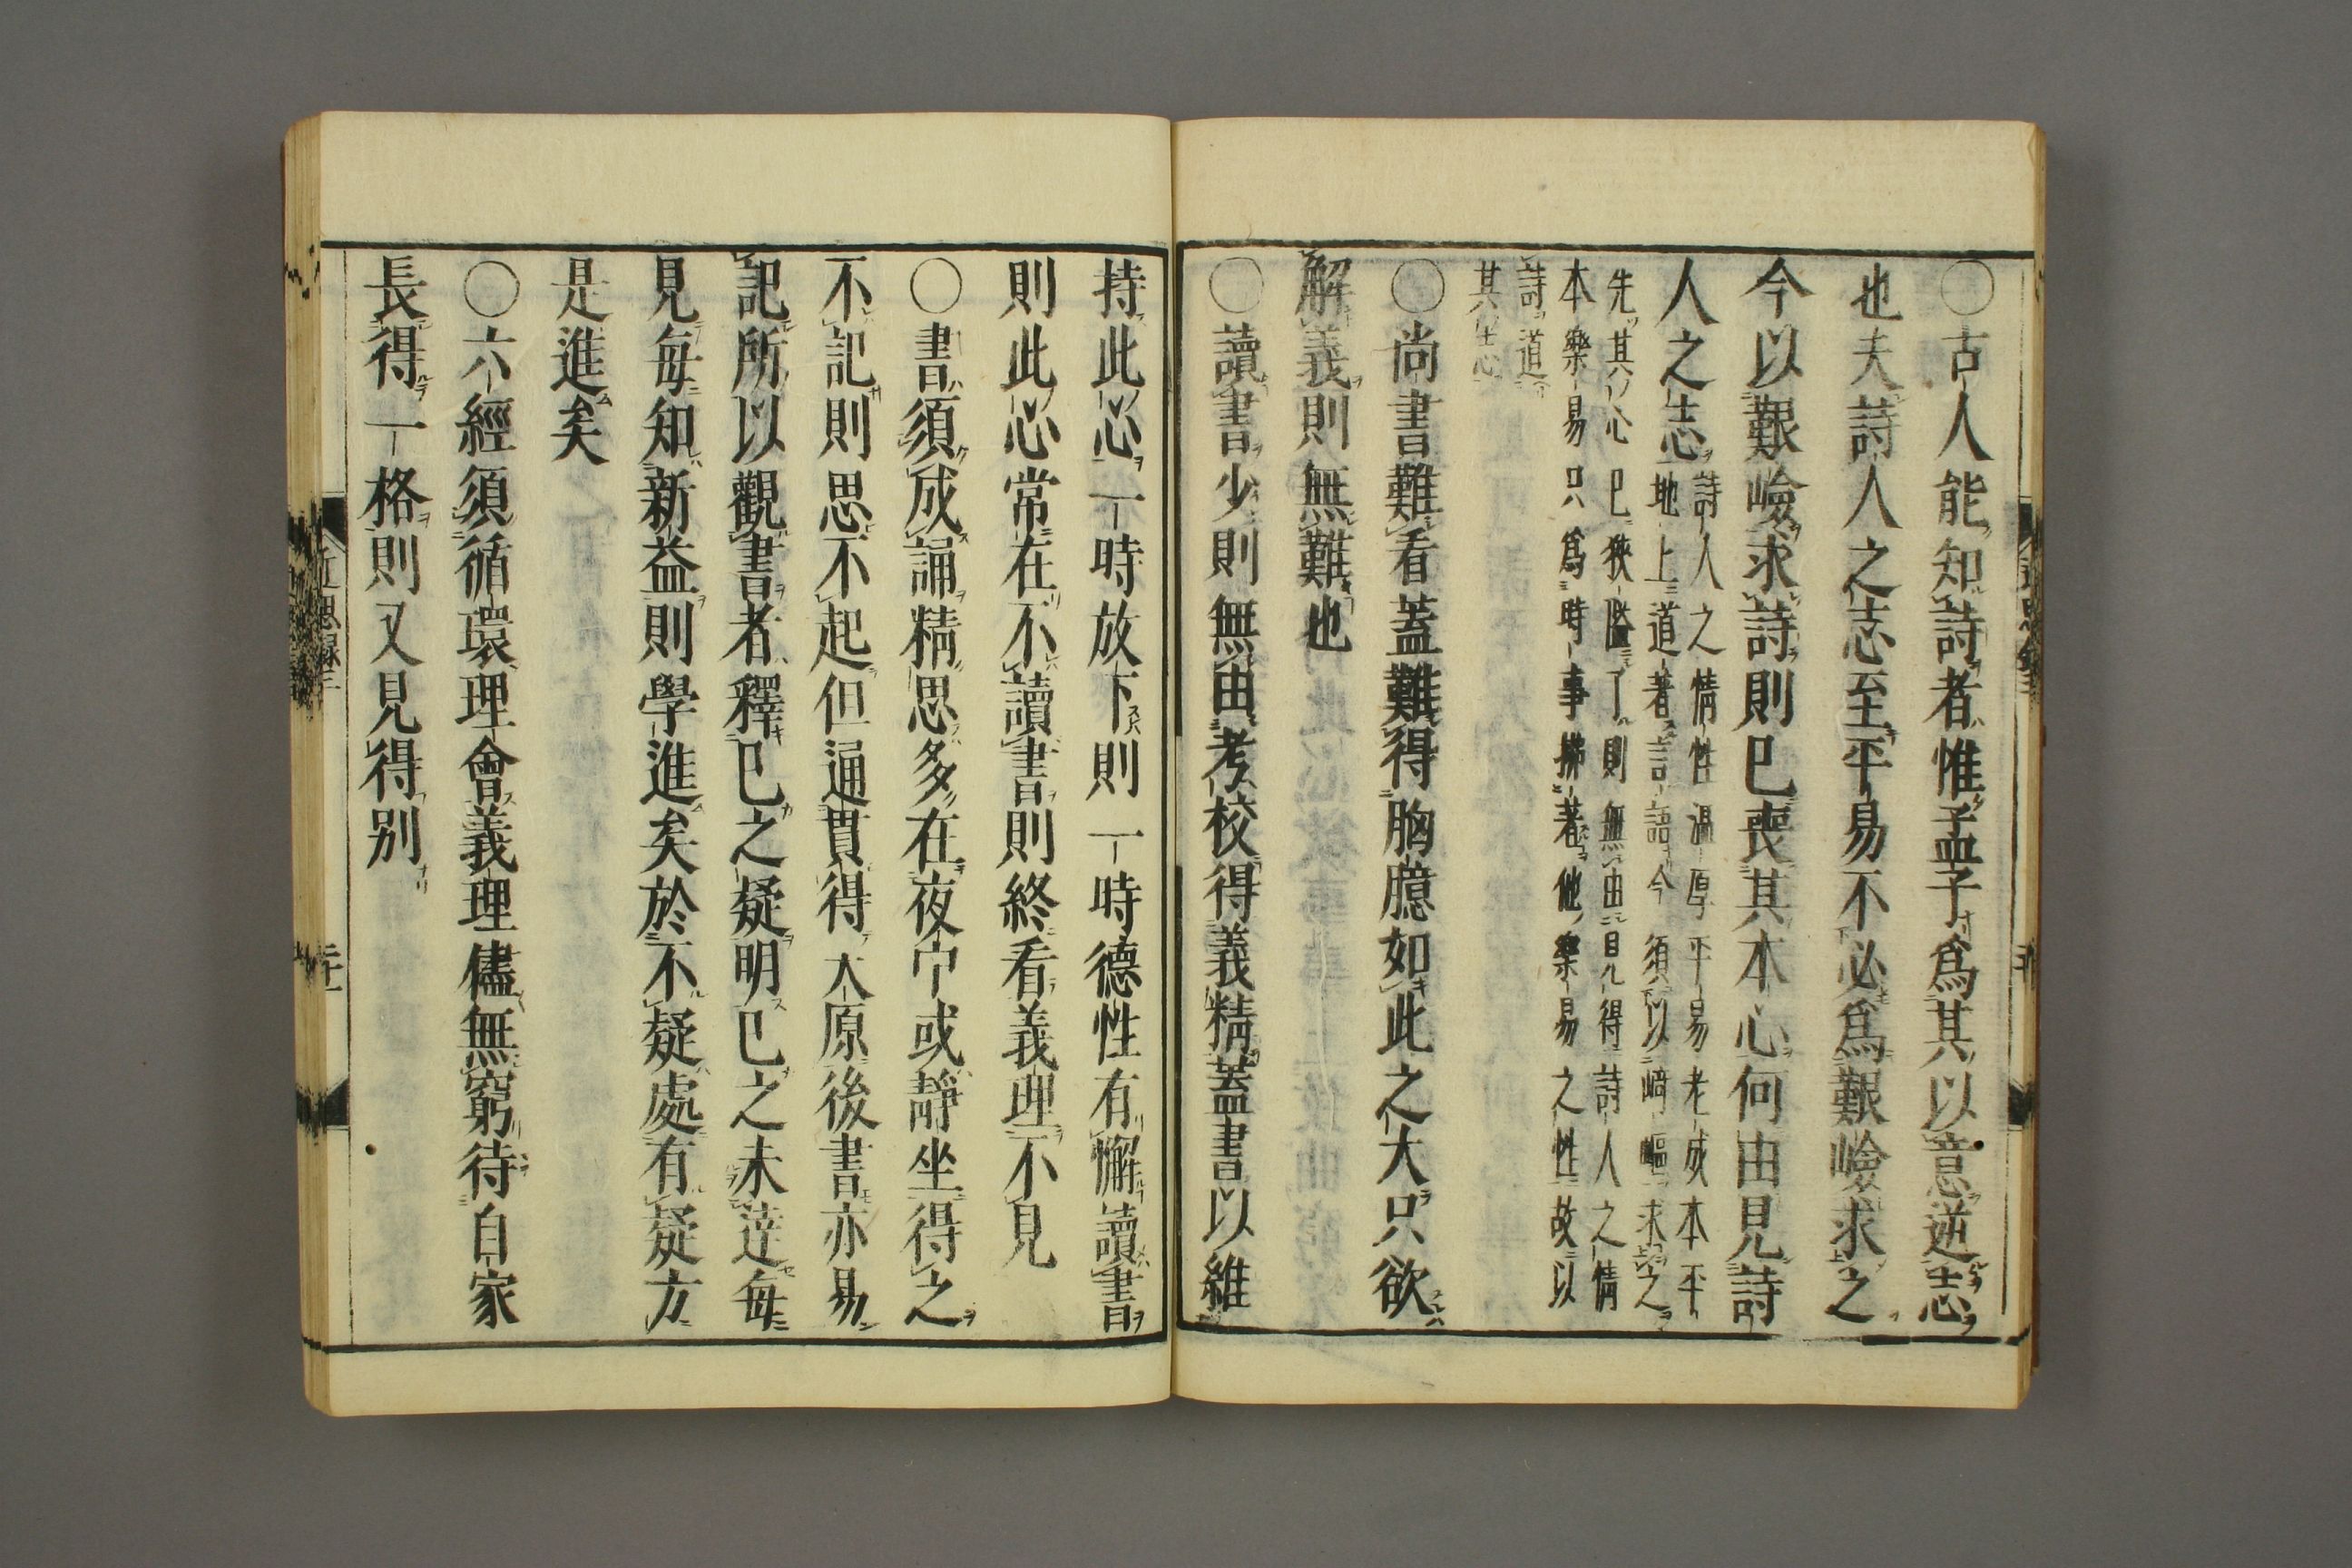 〇古人能知詩者惟孟子爲其以意逆志
也夫詩人之志至平易不必爲艱嶮求之
今以艱嶮求詩則已喪其本心何由見詩
人之志
詩人之情性温厚平易老成本平
地上道著言語今須以﨑嶇求之
先其心已狹隘了則無由見得詩人之情
本樂易只爲時事拂著他樂易之性故以
詩道
其志
〇尚書難看蓋難得胸臆如此之大只欲
解義則無難也
〇讀書少則無由考校得義精蓋書以維
持此心一時放下則一時德性有懈讀書
則此心常在不讀書則終看義理不見
〇書須成誦精思多在夜中或靜坐得之
不記則思不起但通貫得大原後書亦易
記所以觀書者釋己之疑明己之未達每
見每知新益則學進矣於不疑處有疑方
是進矣
〇六經須循環理會義理儘無窮待自家
長得一格則又見得別
近思録三